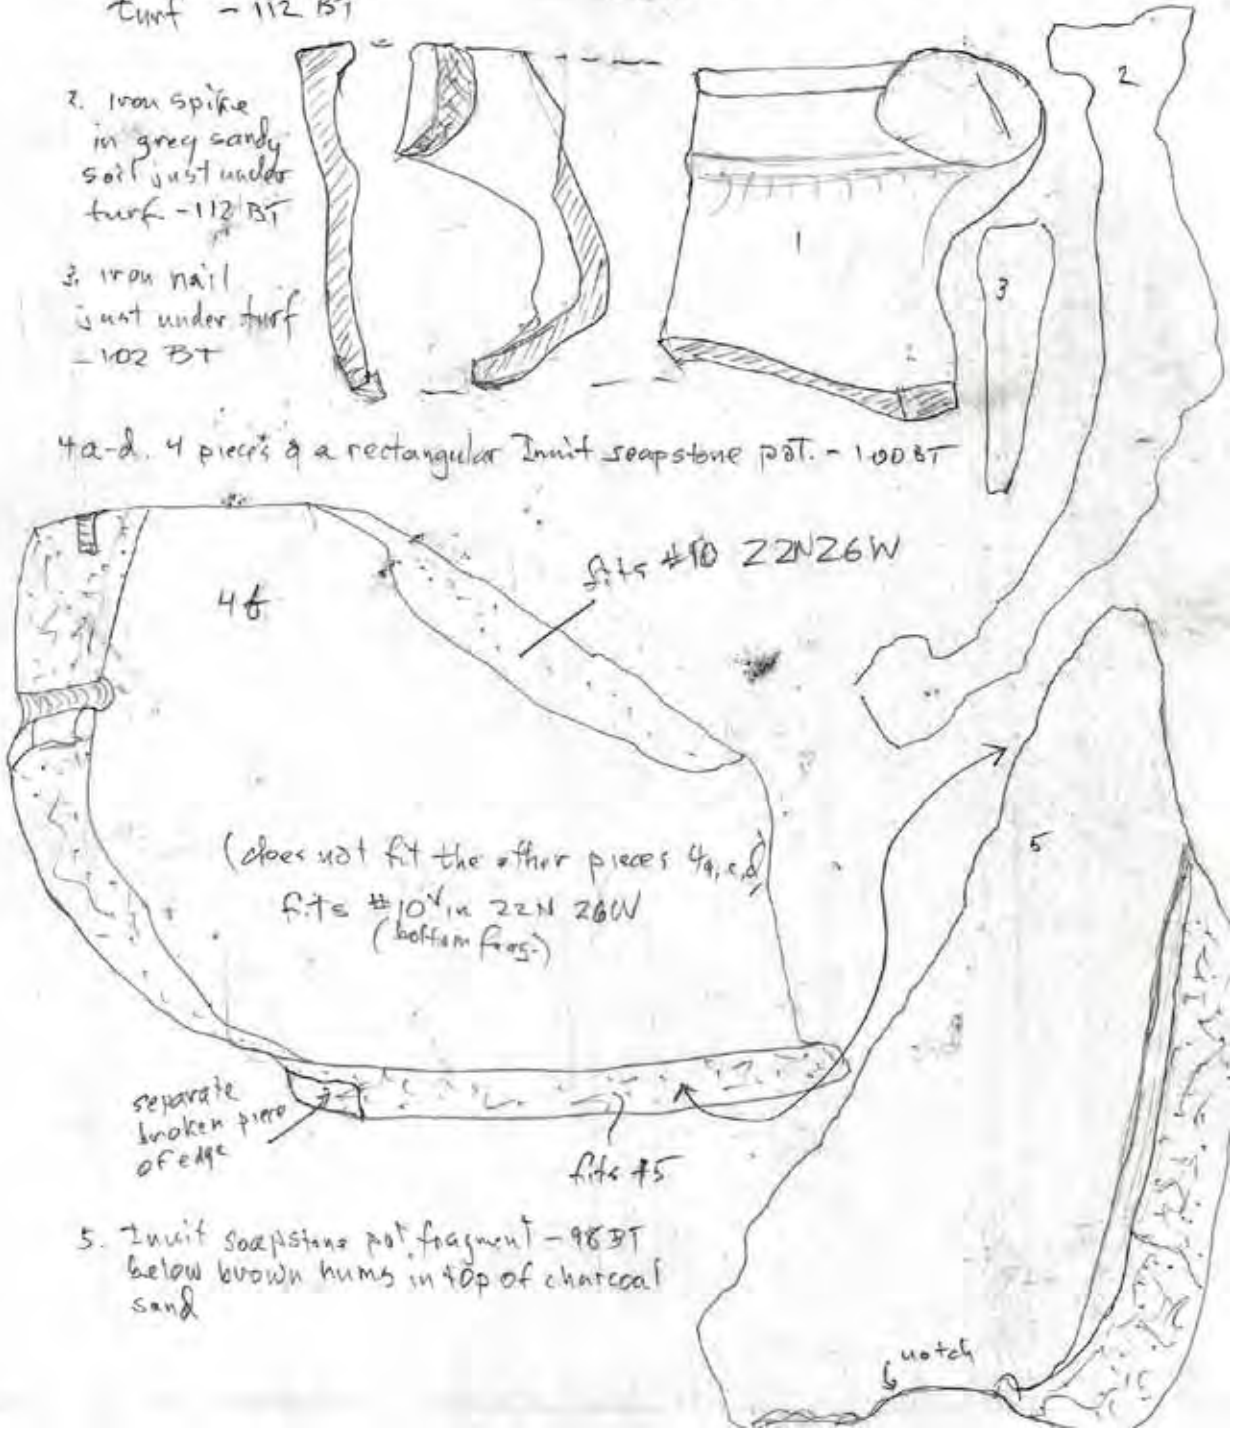 turf - 112 BT
2. Iron spike
in grey sandy
soil just under
turf - 112 BT
3. iron nail
just under turf
- 102 BT
1
2
3
4a-d. 4 pieces of a rectangular Inuit soapstone pot. - 100 BT
fits #10 22N26W
4b
5
(does not fit the other pieces 4a,c,d)
fits #10 in 22N 26W
(bottom frag.)
separate
broken piece
of edge
fits #5
5. Inuit soapstone pot fragment - 98 BT
below brown hums in top of charcoal
sand
notch